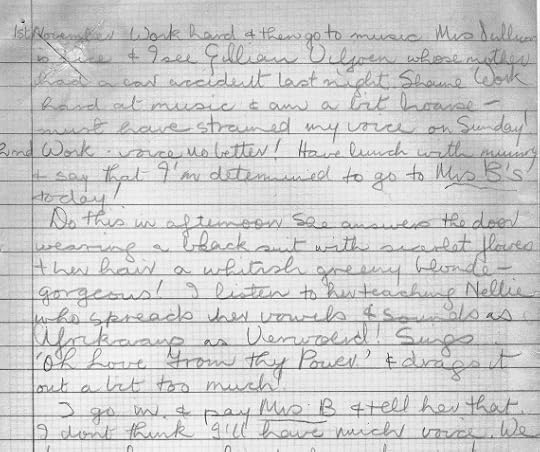 1st November Work hard & then go to music Mrs Sullivan
is nice & I see Gillian Viljoen whose mother
had a car accident last night. Shame Work
hard at music & am a bit hoarse –
must have strained my voice on Sunday!
2nd Work – voice no better! Have lunch with mummy
& say that I'm determined to go to Mrs B's
today!
Do this in afternoon See answers the door
wearing a black suit with scarlet flowers
& her hair a whitish greeny blonde –
gorgeous! I listen to her teaching Nellie
who spreads her vowels & sounds as
Afrikaans as Verwoerd! Sings
'Oh Love from thy Power' & drags it
out a bit too much.
I go in & pay Mrs B & tell her that
I dont think I'll have much voice. We